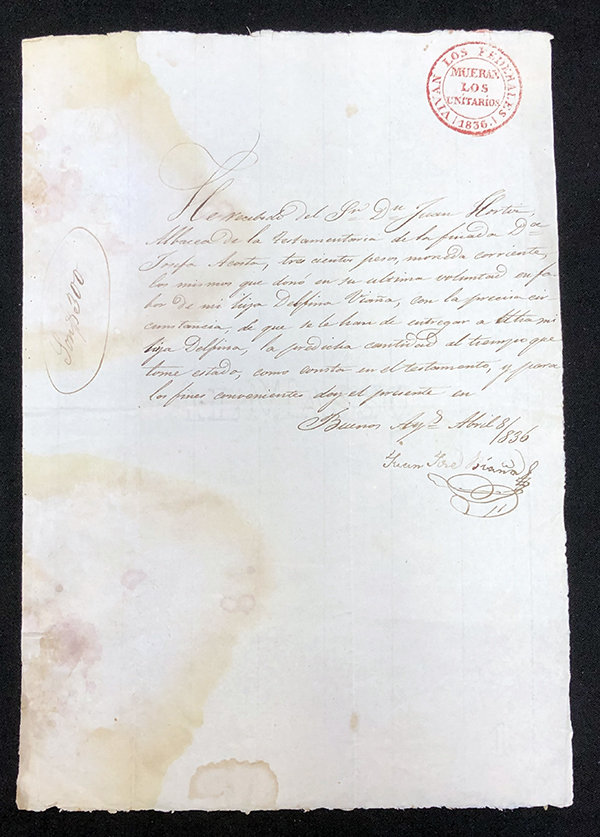 VIVAN LOS FEDERALES
MUERAN
LOS
UNITARIOS
1836.
He recibido del Sr. Dn. Juan
Albacea de la testamentaria de la finada Da.
Josefa Acosta, tres cientos pesos, moneda corriente,
los mismos que donó en su ultima voluntad en fa
bor de mi hija Delfina Viaña, con la precisa cir
cunstancia, de que se le han de entregar a mi
hija Delfina, la predicha cantidad al tiempo que
tome estado, como consta en el testamento, y para
los fines convenientes doy el presente en
Buenos Ays. Abril 8/1836
Juan José Viaña
Son ps 300